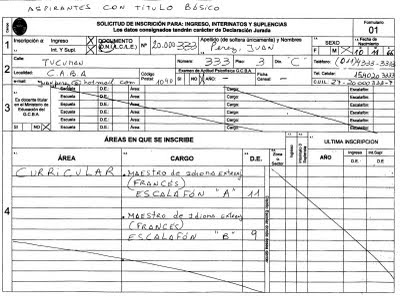 ASPIRANTES CON TÍTULO BÁSICO
SOLICITUD DE INSCRIPCIÓN PARA: INGRESO, INTERINATOS Y SUPLENCIAS
Los datos consignados tendrán carácter de Declaración Jurada
Formulario
01
1 Inscripción a: Ingreso X DOCUMENTO Nº 20.000.333 Apellido (de soltera únicamente) y Nombres SEXO Fecha de Nacimiento
Int. Y Supl. X (D.N.I./L.C./L.E.) Perez, Juan F M X 10 11 66
2 Calle: TUCUMAN Número: 333 Piso: 3 Dto. "C" Teléfono: (011) 4333-3333
Localidad: C.A.B.A Código Postal 1040 Examen de Aptitud Psicofísica G.C.B.A. SI NO X AÑO: Ficha Censal: Tel. Celular:
e-mail: @hotmail.com
3 Es docente titular en el Ministerio de Educación del G.C.B.A.
SI NO X
Escuela D.E.: Área: Cargo: Escalafón:
Escuela D.E.: Área: Cargo: Escalafón:
Escuela D.E.: Área: Cargo: Escalafón:
Escuela D.E.: Área: Cargo: Escalafón:
Escuela D.E.: Área: Cargo: Escalafón:
4 ÁREAS EN QUE SE INSCRIBE ULTIMA INSCRIPCION
ÁREA CARGO D.E. AÑO Ingreso Int.Supl.
D.E. D.E.
CURRICULAR . MAESTRO de idioma extranj
(FRANCÉS)
ESCALAFÓN "A" 11
. MAESTRO de Idioma extranj
(FRANCÉS)
ESCALAFÓN "B" 9